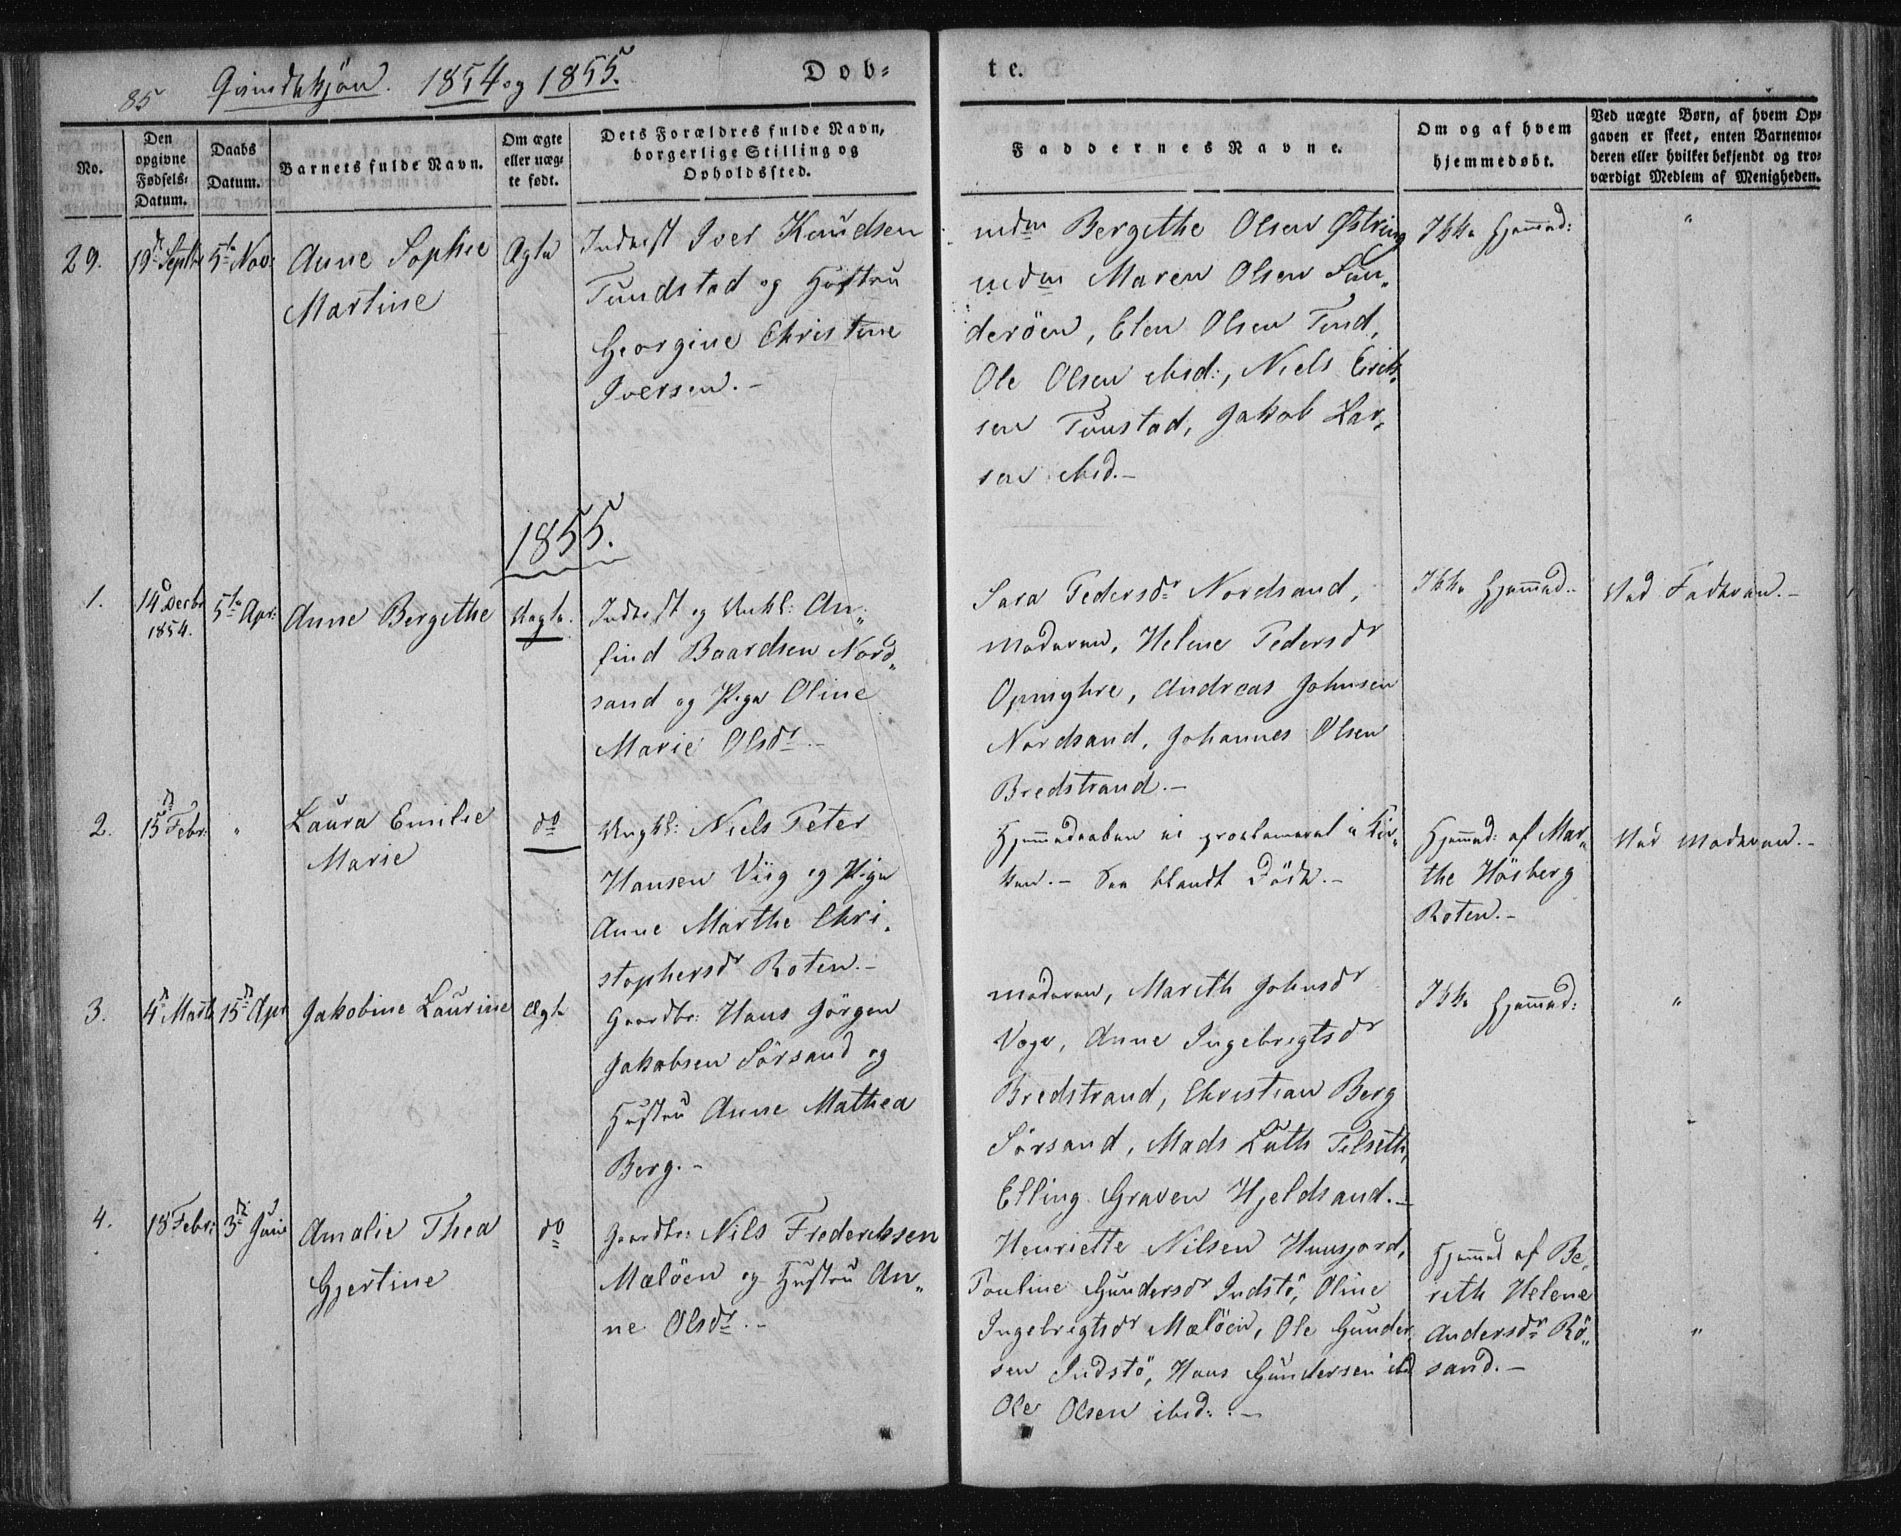 85 Qvindekjön. 1854 og 1855.
Dob= te.
No.
Den opgivne Fødsels-Datum.
Daabs Datum.
Barnets fulde Navn.
Om ægte eller uægte født.
Dets Forældres fulde Navn, borgerlige Stilling og Opholdssted.
Faddernes Navne.
Om og af hvem hjemmedøbt.
Ved uægte Børn, af hvem Opgaven er skeet, enten Barnemoderen eller hvilket bekjendt og troværdigt Medlem af Menigheden.
29. 19de Septbr 5te Nov:
Anne Sophie
Martine
Ægte
Indherst Iver Knudsen
Tundstad og Hustru
Georgine Christine
Iversen.-
mdm Bergithe Olsen
mdm Maren Olsen Sun„
deröen, Elen Olsen Tind,
Ole Olsen ibid:, Niels Erik„
sen Tunstad, Jakob Lar„
sen ibid.-
Ikke Hjemmed:
"
1855.
1. 14de Decbr 1854. 5te Apr:
Anne Bergethe
Uægte.
Inderst og Unkl: An„
find Baardsen Nord„
sand og Pige Oline
Marie Olsdr.-
Sara Pedersdr Nordsand,
Moderen, Helene Pedersdr
Opmyhre, Andreas Johnsen
Nordsand, Johannes Olsen
Bredstrand.-
Ikke Hjemmed..
Ved Faderen.-
2. 15de Febr: "
Laura Emilie
Marie
do
Ungkl: Niels Peter
Hansen Viig og Pige
Anne Marthe Chri„
stophersdr Roten.-
Hjemmedaaben ei proclameret i Kir„
ken.- See blandt Döde.-
Hjemmed: af Mar„
the Hösberg
Roten.-
Ved Moderen.-
3. 4de Marts 15de Apr
Jakobine Laurine
Ægte
Gaardbr: Hans Jörgen
Jakobsen Sörsand og
Hustru Anne Mathea
Berg.-
Moderen, Mareth Johnsdr
Voge, Anne Ingebrigtsdr
Bredstrand, Christian Berg
Sörsand, Mads Luth
Elling Graven Hjeldsand.-
Ikke Hjemmed:
"
4. 18 Febr: 3die Juni
Amalie Thea
Gjertine
do
Gaardbr: Nils Frederiksen
Mælöen og Hustru An„
ne Olsdr.-
Henriette Nilsen Huusjord,
Pauline Gundersdr Indstö, Oline
Ingebrigtsdr Mælöen, Ole Gunder„
sen Indstö, Hans Gundersen ibd
Ole Olsen ibid:.-
Hjemmed af Be„
reth Helene
Andersdr Rö„
sand.-
"